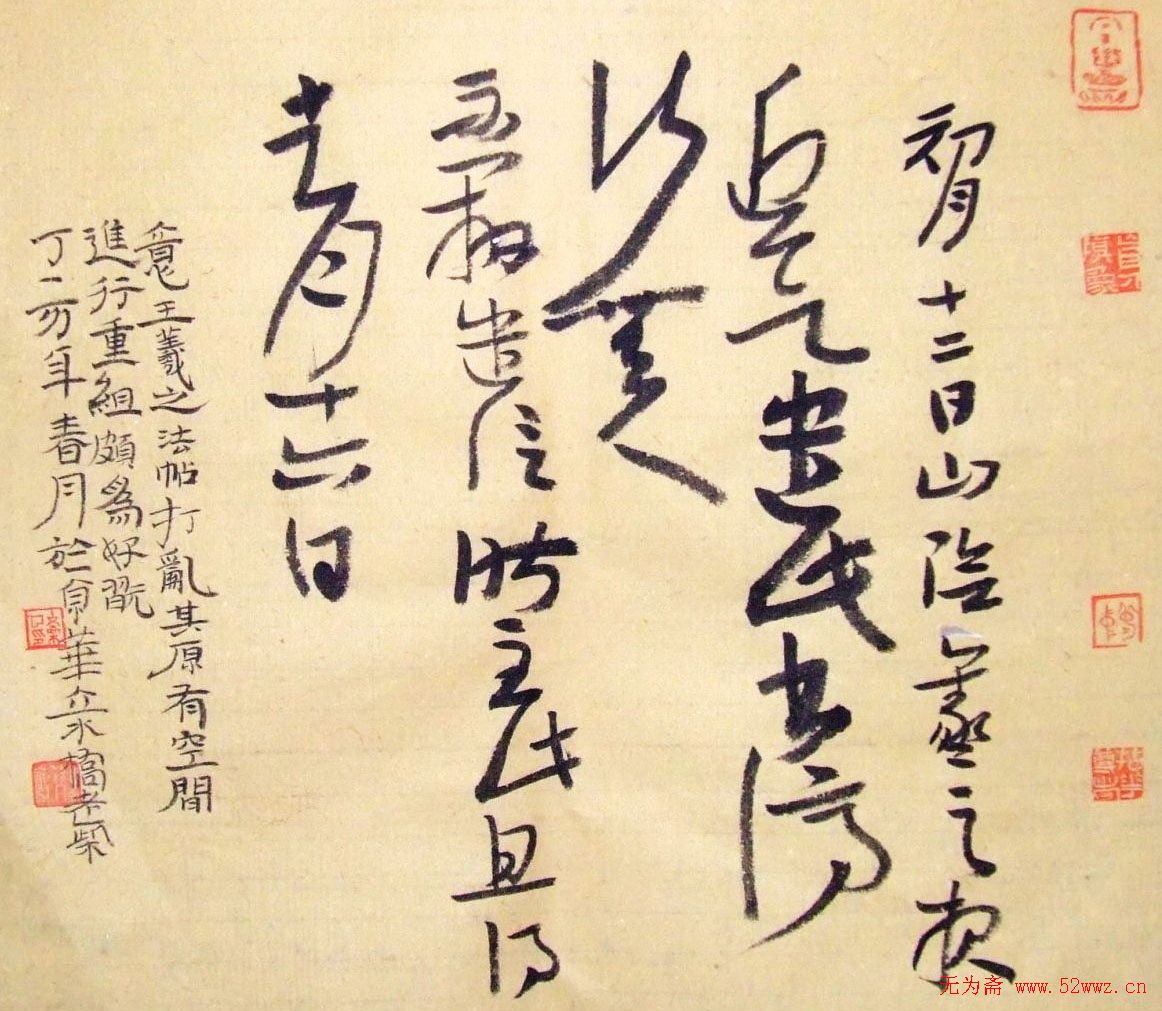 初月十二日山陰羲之報
近欲遣此書停
行無人
不辦遣信昨至此且得
去月十六日
意王羲之法帖打亂其原有空間
進行重組頗為好翫
丁亥年春月於京華立水橋老柴
无为斋 www.52wwz.cn